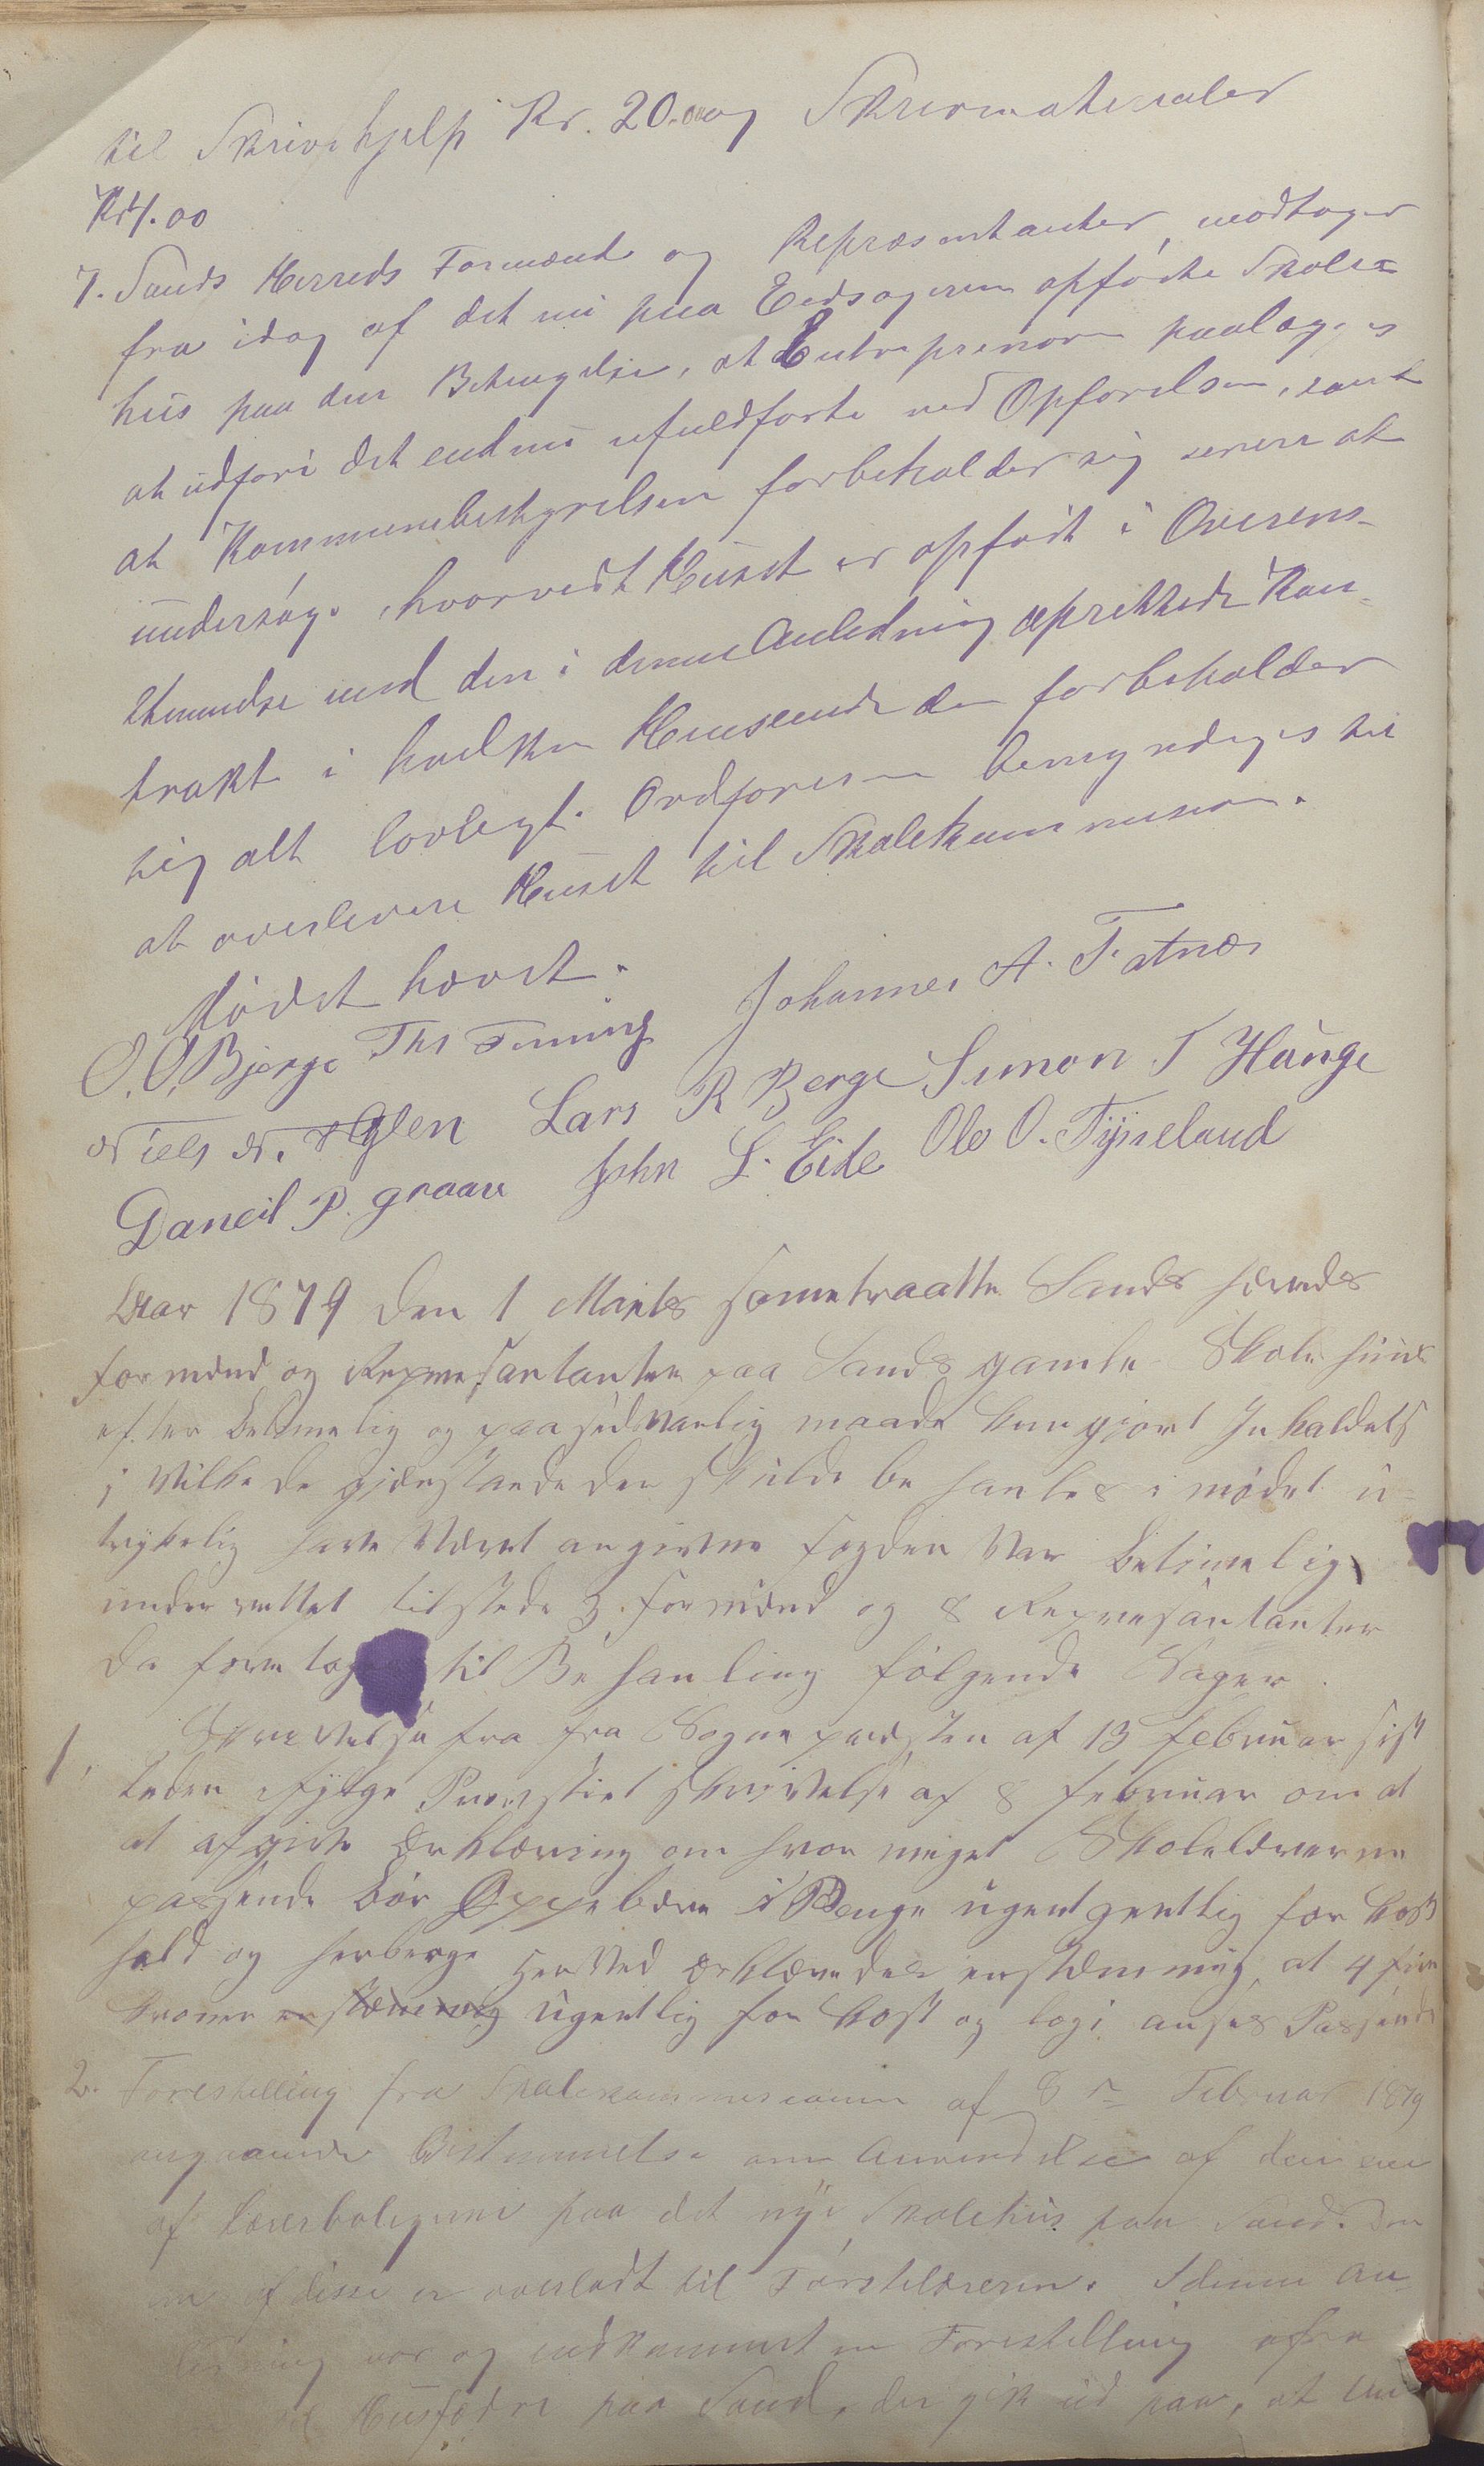 til Skrivehjelp Kr. 20.00 og Skrivmaterialer
Kr 4.00
7. Sands Herreds Formænd og Repræsentanter modtager
fra idag af det nu paa Eidsøgeren opførte Skole-
hus paa den Betingelse, at Entreprenøren paalægges
at udføre det endnu ufuldførte ved Opførelsen, samt
at Kommunebestyrelsen forbeholder sig senere at
undersøge, hvorvidt Huset er opført i Overens-
stemmelse med den i denne Anledning oprettede Kon-
trakt i hvilken Henseende den forbeholder
sig alt lovlegt. Ordføreren bemyndiges til
at overlevere Huset til Skolekommissionen.
Mødet hævet.
Johannes A. Fatnæs
O. O. Bjerge Ths Fenning
Niels N. Lars R Berge Simon T Hauge
Daneil P. graau John L. Eide Ole O. Tysseland
Aar 1879 den 1 Marts sametraatte Sands Hereds
formænd og Repræsantanter paa Sands gamle Skolehuus
efter betimelig og paa sedvanlig maade kungjort Inkaldels
i Vilke de gjenstande der skulde behanles i mødet u-
trykelig have Været angivne fogden Var betimelig
underrettet tilstede 3. formænd og 8 Repræsantanter
da foretoges til Behanling følgende Sager.
1, Skrivelse fra fra Sogneprdsten af 13 februar sist
leden ifylge Provstiet skrivelse af 8 februar om at
at afgive Erklæring om hvor meget Skolelærerne
passende bør Oppebære i Penge ugentgentlig for kost
hold og herberge Herved erklærredes enstemmig, at 4 fire
kroner enstemmig ugentlig for kost og logi anses Passende
2. Forestilling fra Skolekommissionen af 8de Februar 1879
angaaende Bestemmelse om Anvendelse af den ene
af Lærerboligerne paa det nye Skolehus paa Sand. Den
ene af disse er overladt til Førstelæreren. I denne An-
ledning var og indkommet en Forestilling fra
Husfædre paa Sand, der gik ud paa, at